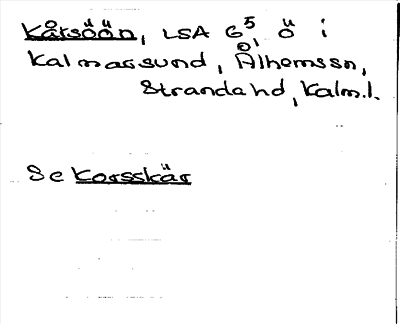 Kårsöön, LSA G⁵, ö i
Kalmarsund, Ålhemssn,
Strandahd, Kalm.l.
Se Korsskär